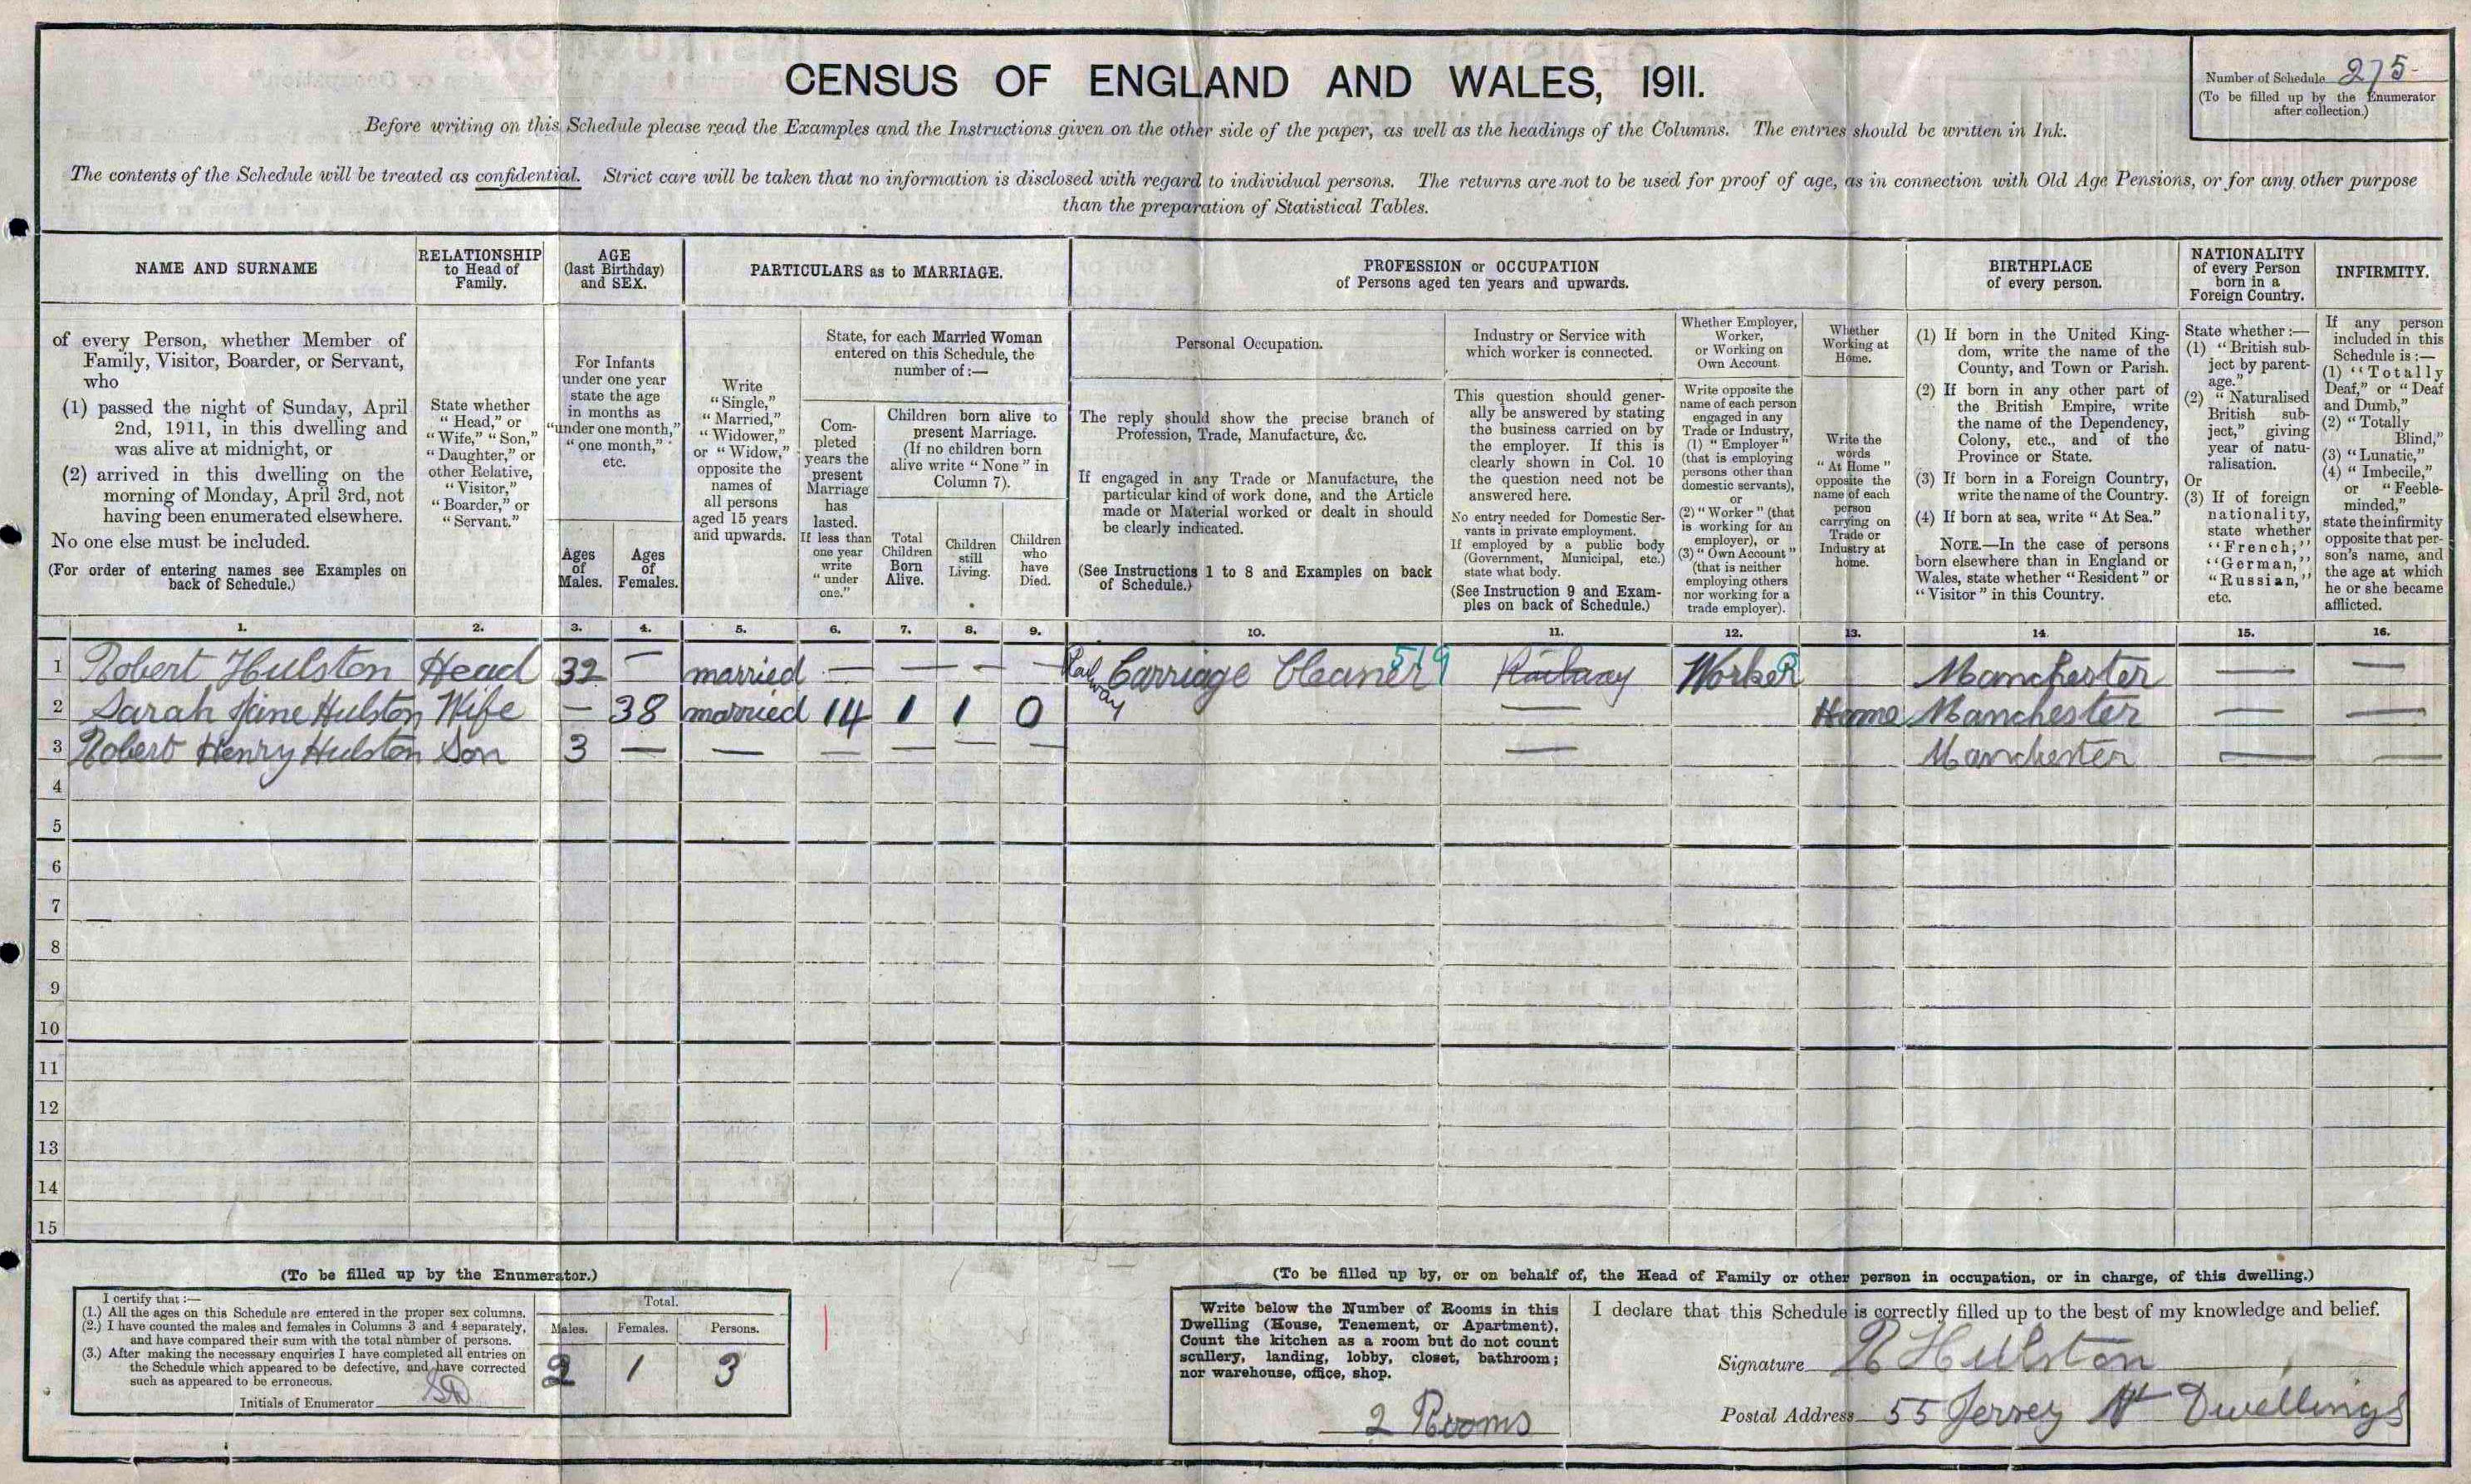 CENSUS OF ENGLAND AND WALES, 1911.
Number of Schedule 275
(To be filled up by the Enumerator
after collection.)
Before writing on this Schedule please read the Examples and the Instructions given on the other side of the paper, as well as the headings of the Columns. The entries should be written in Ink.
The contents of the Schedule will be treated as confidential. Strict care will be taken that no information is disclosed with regard to individual persons. The returns are not to be used for proof of age, as in connection with Old Age Pensions, or for any other purpose
than the preparation of Statistical Tables.
NAME AND SURNAME
of every Person, whether Member of
Family, Visitor, Boarder, or Servant,
who
(1) passed the night of Sunday, April
2nd, 1911, in this dwelling and
was alive at midnight, or
(2) arrived in this dwelling on the
morning of Monday, April 3rd, not
having been enumerated elsewhere.
No one else must be included.
(For order of entering names see Examples on
back of Schedule.)
RELATIONSHIP
to Head of
Family.
State whether
"Head," or
"Wife," "Son,"
"Daughter," or
other Relative,
"Visitor,"
"Boarder," or
"Servant."
AGE
(last Birthday)
and SEX.
For Infants
under one year
state the age
in months as
"under one month,"
"one month,"
etc.
Ages
of
Males.
Ages
of
Females.
PARTICULARS as to MARRIAGE.
Write
"Single,"
"Married,"
"Widower,"
or "Widow,"
opposite the
names of
all persons
aged 15 years
and upwards.
State, for each Married Woman
entered on this Schedule, the
number of:—
Com-
pleted
years the
present
Marriage
has
lasted.
If less than
one year
write
"under
one."
Children born alive to
present Marriage.
(If no children born
alive write "None" in
Column 7).
Total
Children
Born
Alive.
Children
still
Living.
Children
who
have
Died.
PROFESSION or OCCUPATION
of Persons aged ten years and upwards.
Personal Occupation.
The reply should show the precise branch of
Profession, Trade, Manufacture, &c.
If engaged in any Trade or Manufacture, the
particular kind of work done, and the Article
made or Material worked or dealt in should
be clearly indicated.
(See Instructions 1 to 8 and Examples on back
of Schedule.)
Industry or Service with
which worker is connected.
This question should gener-
ally be answered by stating
the business carried on by
the employer. If this is
clearly shown in Col. 10
the question need not be
answered here.
No entry needed for Domestic Ser-
vants in private employment.
If employed by a public body
(Government, Municipal, etc.)
state what body.
(See Instruction 9 and Exam-
ples on back of Schedule.)
Whether Employer,
Worker,
or Working on
Own Account.
Write opposite the
name of each person
engaged in any
Trade or Industry,
(1) "Employer"
(that is employing
persons other than
domestic servants),
or
(2) "Worker" (that
is working for an
employer), or
(3) "Own Account"
(that is neither
employing others
nor working for a
trade employer).
Whether
Working at
Home.
Write the
words
"At Home"
opposite the
name of each
person
carrying on
Trade or
Industry at
home.
BIRTHPLACE
of every person.
(1) If born in the United King-
dom, write the name of the
County, and Town or Parish.
(2) If born in any other part of
the British Empire, write
the name of the Dependency,
Colony, etc., and of the
Province or State.
(3) If born in a Foreign Country,
write the name of the Country.
(4) If born at sea, write "At Sea."
NOTE.—In the case of persons
born elsewhere than in England or
Wales, state whether "Resident" or
"Visitor" in this Country.
NATIONALITY
of every Person
born in a
Foreign Country.
State whether:—
(1) "British sub-
ject by parent-
age."
(2) "Naturalised
British sub-
ject," giving
year of natu-
ralisation.
Or
(3) If of foreign
nationality,
state whether
"French,"
"German,"
"Russian,"
etc.
INFIRMITY.
If any person
included in this
Schedule is:—
(1) "Totally
Deaf," or "Deaf
and Dumb,"
(2) "Totally
Blind,"
(3) "Lunatic,"
(4) "Imbecile,"
or "Feeble-
minded,"
state the infirmity
opposite that per-
son's name, and
the age at which
he or she became
afflicted.
1. 2. 3. 4. 5. 6. 7. 8. 9. 10. 11. 12. 13. 14. 15. 16.
1 Robert Hulston Head 32 — married — — — — Railway Carriage Cleaner 519 Railway Worker Manchester — —
2 Sarah Jane Hulston Wife — 38 married 14 1 1 0 — Home Manchester — —
3 Robert Henry Hulston Son 3 — — — — — — — Manchester — —
4
5
6
7
8
9
10
11
12
13
14
15
(To be filled up by the Enumerator.)
I certify that:—
(1.) All the ages on this Schedule are entered in the proper sex columns.
(2.) I have counted the males and females in Columns 3 and 4 separately,
and have compared their sum with the total number of persons.
(3.) After making the necessary enquiries I have completed all entries on
the Schedule which appeared to be defective, and have corrected
such as appeared to be erroneous.
Initials of Enumerator
Total.
Males. Females. Persons.
2 1 3
(To be filled up by, or on behalf of, the Head of Family or other person in occupation, or in charge, of this dwelling.)
Write below the Number of Rooms in this
Dwelling (House, Tenement, or Apartment).
Count the kitchen as a room but do not count
scullery, landing, lobby, closet, bathroom;
nor warehouse, office, shop.
2 Rooms
I declare that this Schedule is correctly filled up to the best of my knowledge and belief.
Signature R Hulston
Postal Address 55 Jersey St Dwellings